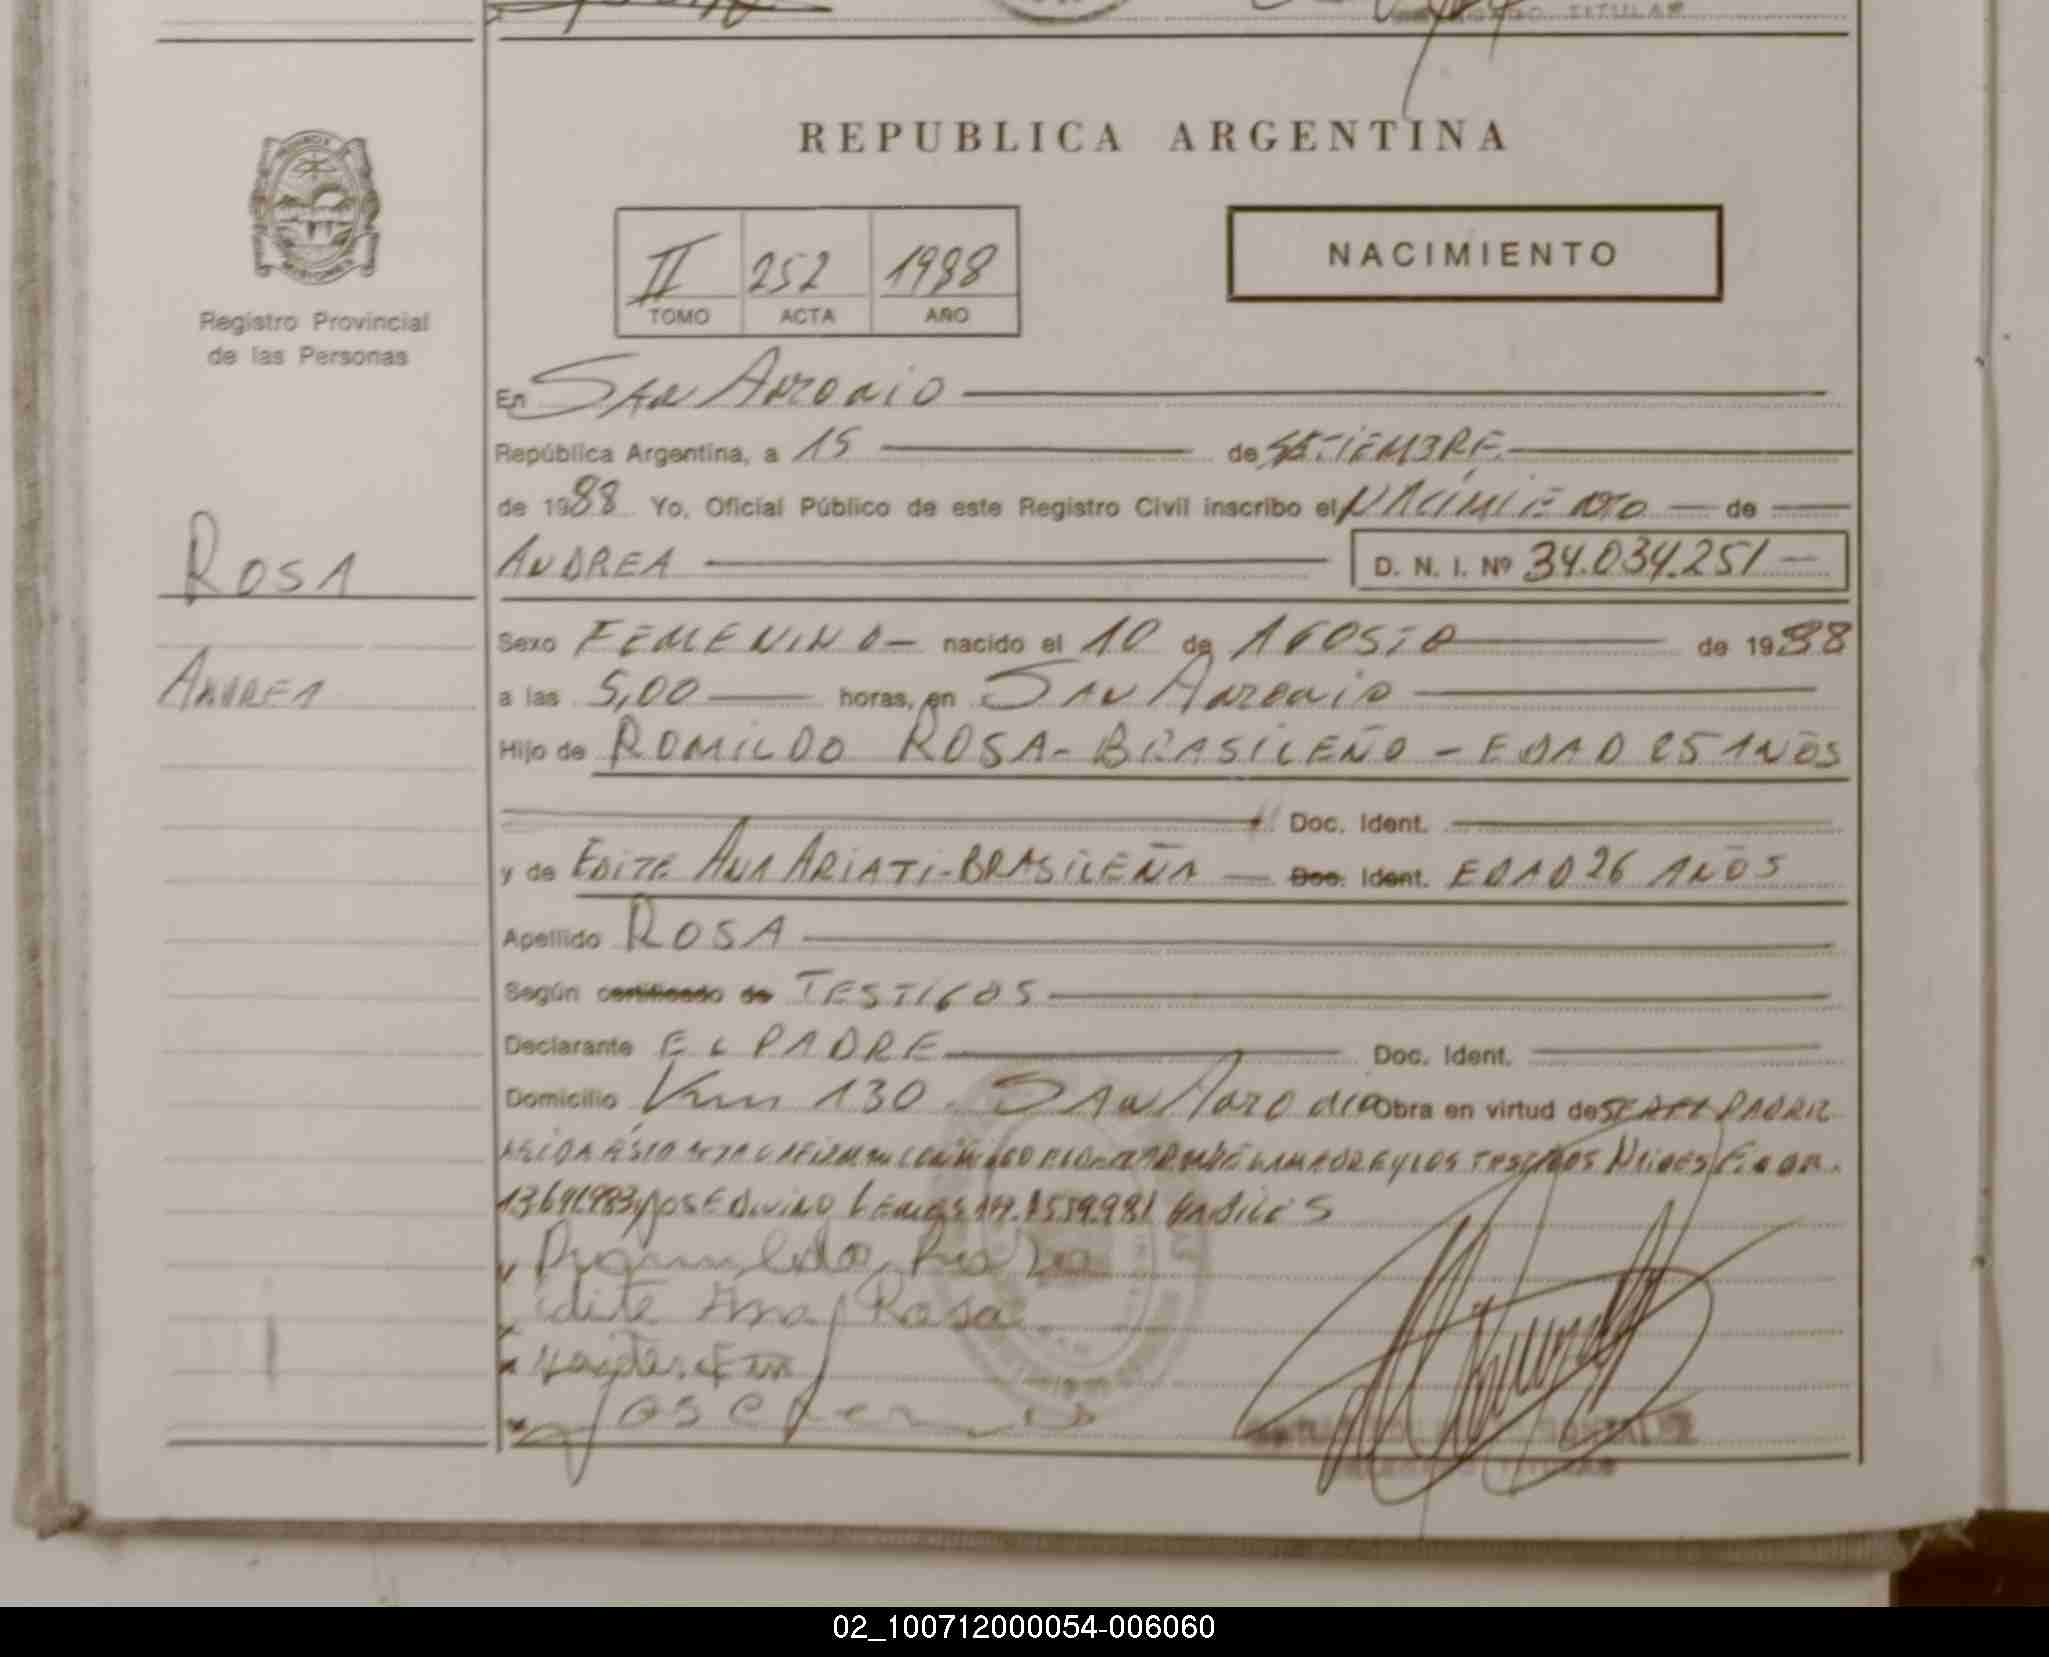 TITULAR
REPUBLICA ARGENTINA
II 252 1988
TOMO ACTA AÑO
NACIMIENTO
Registro Provincial
de las Personas
ROSA
ANDREA
En SAN ANTONIO
República Argentina, a 15 de SETIEMBRE
de 1988 Yo, Oficial Público de este Registro Civil inscribo el NACIMIENTO de
ANDREA D. N. I. Nº 34.034.251
Sexo FEMENINO nacido el 10 de AGOSTO de 1988
a las 5,00 horas, en SAN ANTONIO
Hijo de ROMILDO ROSA - BRASILEÑO - EDAD 25 AÑOS
Doc. Ident.
y de EDITE ANA ARIATI - BRASILEÑA Doc. Ident. EDAD 26 AÑOS
Apellido ROSA
Según certificado de TESTIGOS
Declarante EL PADRE Doc. Ident.
Domicilio Km 130 SAN ANTONIO Obra en virtud de SER EL PADRE
LOS TESTIGOS
JOSE LEMOS HABILES
Edite Ana Rosa
Jose Lemos
02_100712000054-006060